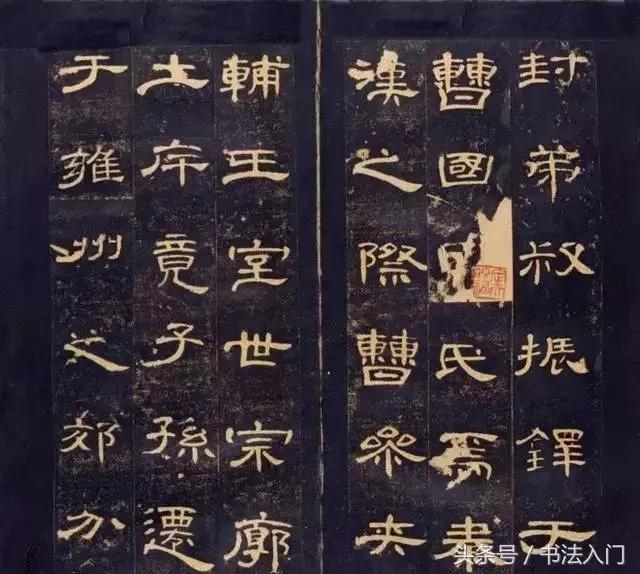 封弟叔振鐸于
曹國因氏焉秦
漢之際曹參夾
輔王室世宗廓
土斥竟子孫遷
于雍州之郊分
头条号 / 书法入门